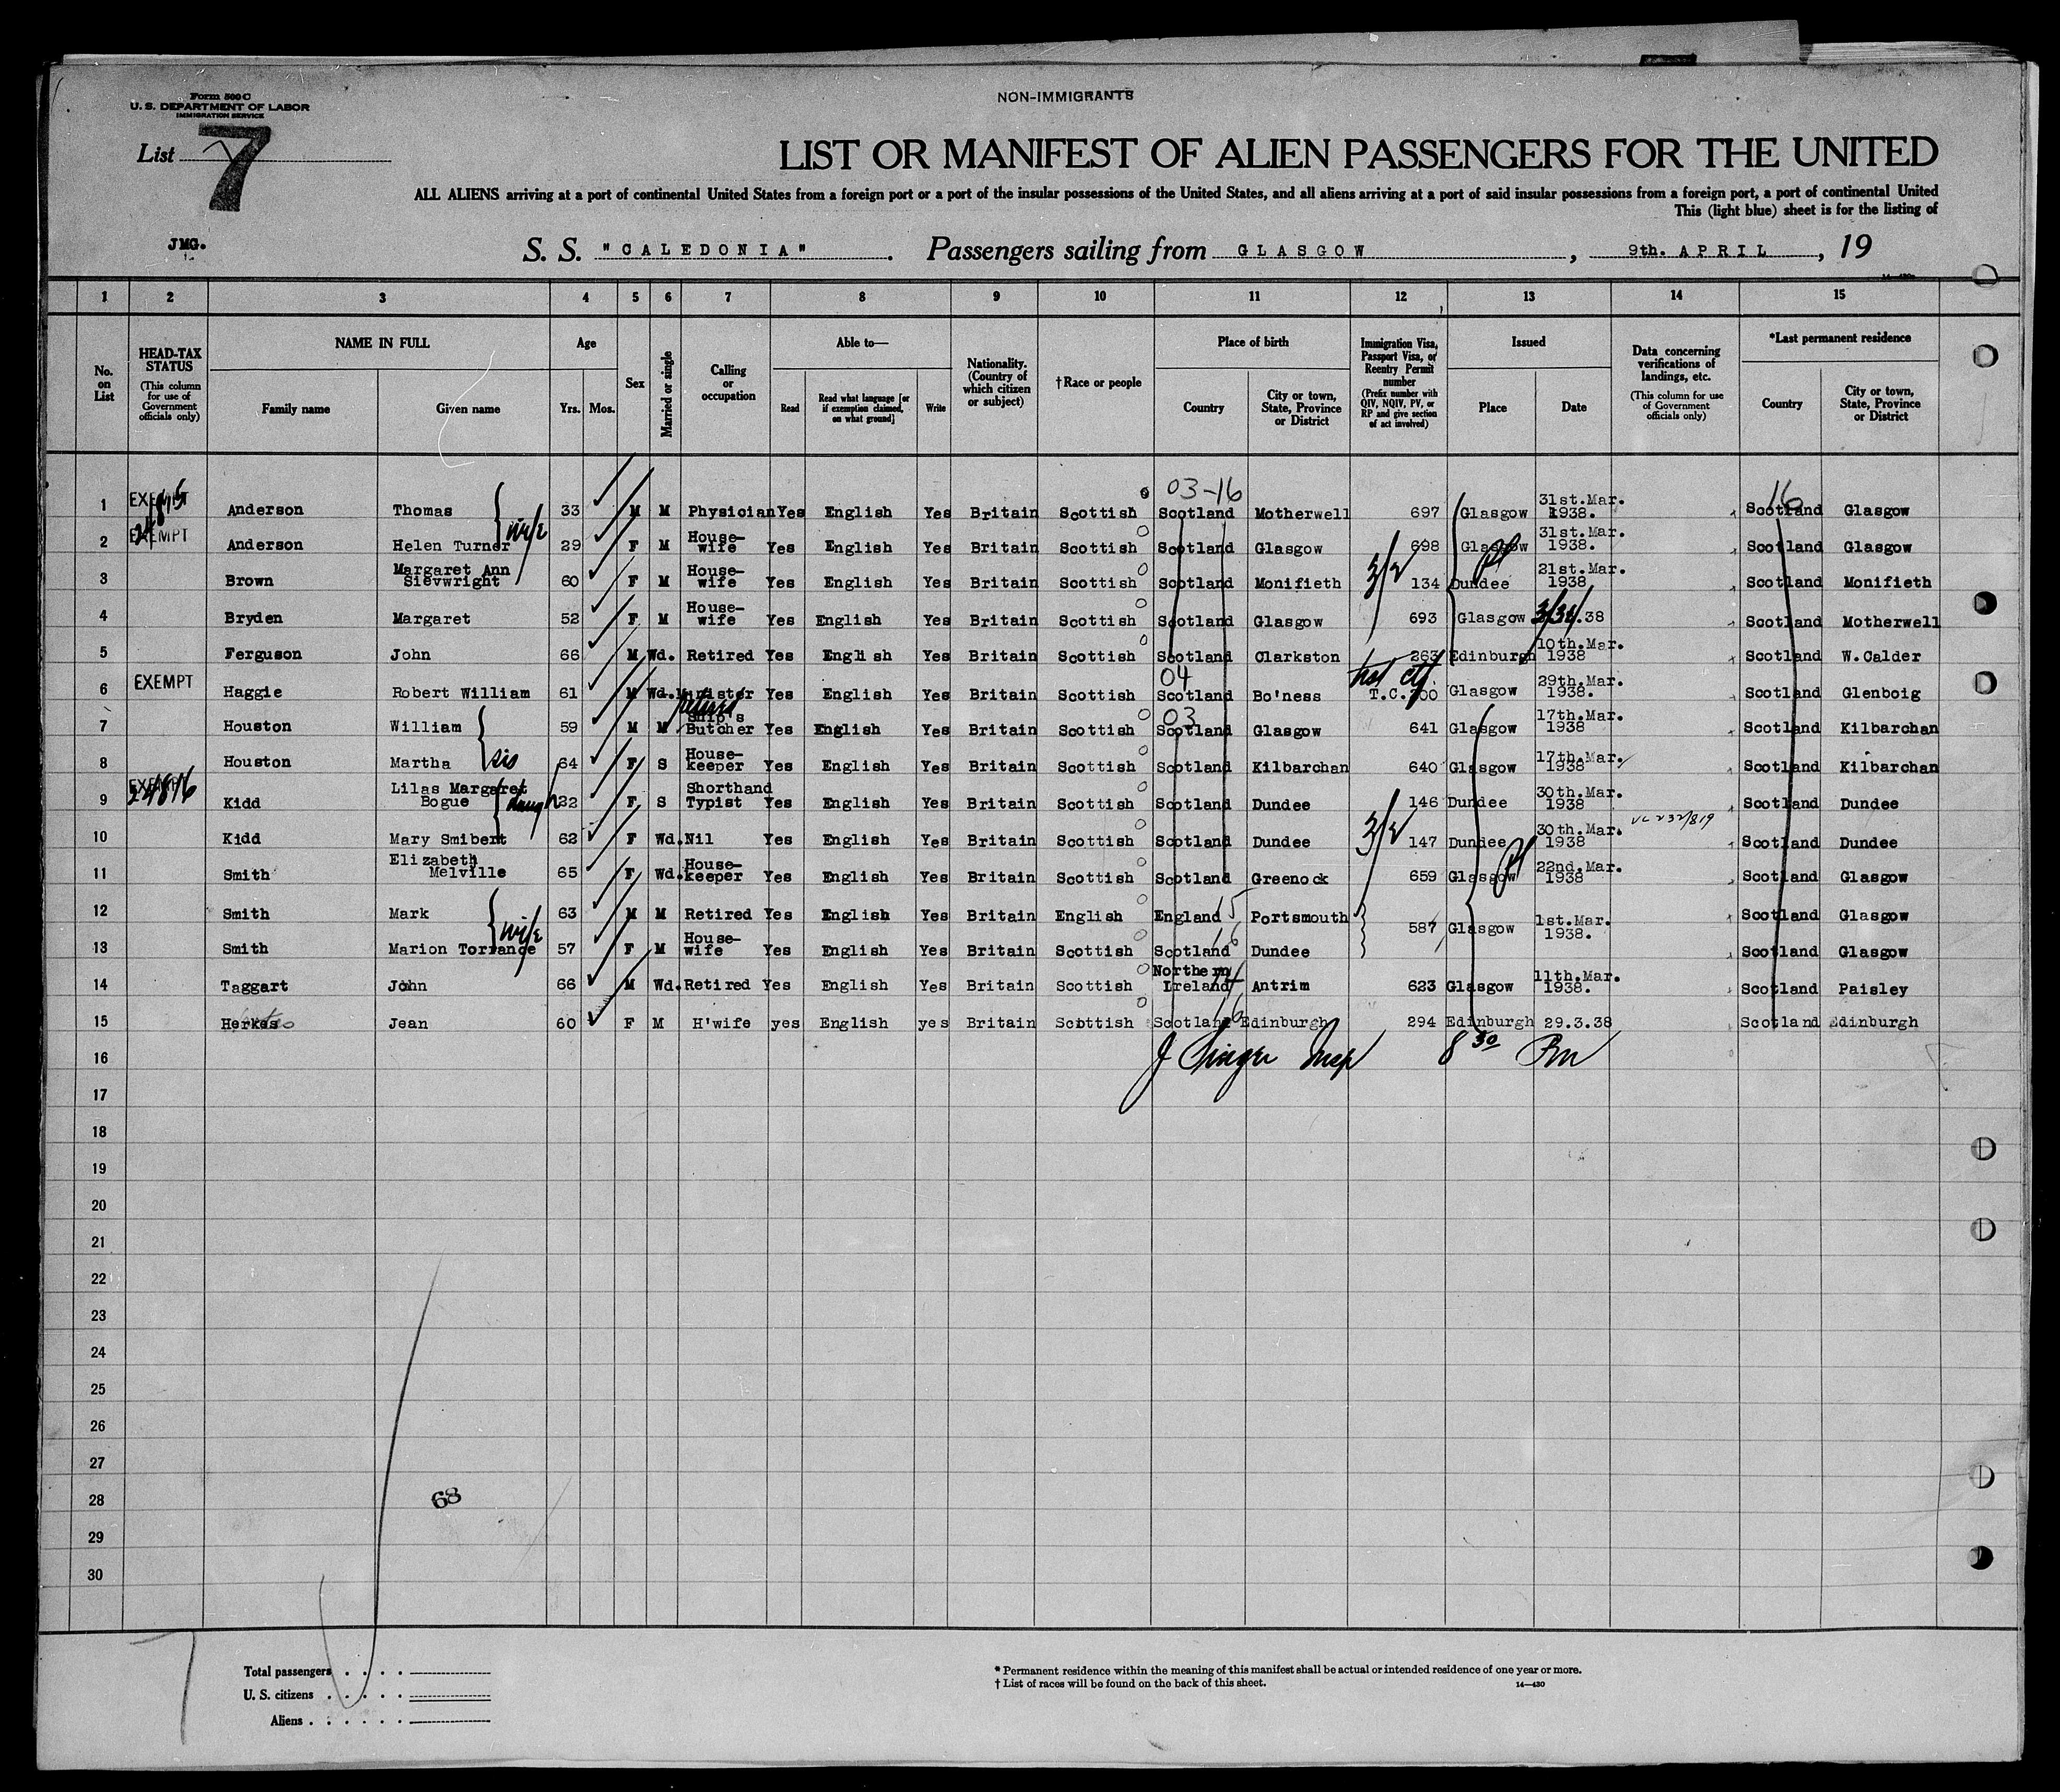 Form 500 C
U. S. DEPARTMENT OF LABOR
IMMIGRATION SERVICE
NON-IMMIGRANTS
List 7
LIST OR MANIFEST OF ALIEN PASSENGERS FOR THE UNITED
ALL ALIENS arriving at a port of continental United States from a foreign port or a port of the insular possessions of the United States, and all aliens arriving at a port of said insular possessions from a foreign port, a port of continental United
This (light blue) sheet is for the listing of
JMG.
S. S. "CALEDONIA". Passengers sailing from GLASGOW, 9th. APRIL, 19
1 2 3 4 5 6 7 8 9 10 11 12 13 14 15
No. on List
HEAD-TAX STATUS (This column for use of Government officials only)
NAME IN FULL Family name Given name
Age Yrs. Mos.
Sex
Married or single
Calling or occupation
Able to— Read Read what language [or if exemption claimed, on what ground] Write
Nationality. (Country of which citizen or subject)
†Race or people
Place of birth Country City or town, State, Province or District
Immigration Visa, Passport Visa, or Reentry Permit number (Prefix number with QIV, NQIV, PV, or RP and give section of act involved)
Issued Place Date
Data concerning verifications of landings, etc. (This column for use of Government officials only)
*Last permanent residence Country City or town, State, Province or District
03-16 16
1 EXEMPT Anderson Thomas 33 M M Physician Yes English Yes Britain Scottish Scotland Motherwell 697 Glasgow 31st.Mar. 1938. Scotland Glasgow
wife
2 EXEMPT Anderson Helen Turner 29 F M House-wife Yes English Yes Britain Scottish Scotland Glasgow 698 Glasgow 31st.Mar. 1938. Scotland Glasgow
3 Brown Margaret Ann Sievwright 60 F M House-wife Yes English Yes Britain Scottish Scotland Monifieth 134 Dundee 21st.Mar. 1938 Scotland Monifieth
4 Bryden Margaret 52 F M House-wife Yes English Yes Britain Scottish Scotland Glasgow 693 Glasgow 3/31/.38 Scotland Motherwell
5 Ferguson John 66 M Wd. Retired Yes English Yes Britain Scottish Scotland Clarkston 263 Edinburgh 10th.Mar. 1938 Scotland W.Calder
04
6 EXEMPT Haggie Robert William 61 M Wd. Minister Yes English Yes Britain Scottish Scotland Bo'ness T.C.700 Glasgow 29th.Mar. 1938. Scotland Glenboig
03
7 Houston William 59 M M Ship's Butcher Yes English Yes Britain Scottish Scotland Glasgow 641 Glasgow 17th.Mar. 1938 Scotland Kilbarchan
sis
8 Houston Martha 64 F S House-keeper Yes English Yes Britain Scottish Scotland Kilbarchan 640 Glasgow 17th.Mar. 1938 Scotland Kilbarchan
9 EXEMPT 24816 Kidd Lilas Margaret Bogue 32 F S Shorthand Typist Yes English Yes Britain Scottish Scotland Dundee 146 Dundee 30th.Mar. 1938 Scotland Dundee
10 Kidd Mary Smibert 62 F Wd. Nil Yes English Yes Britain Scottish Scotland Dundee 147 Dundee 30th.Mar. 1938 Scotland Dundee
11 Smith Elizabeth Melville 65 F Wd. House-keeper Yes English Yes Britain Scottish Scotland Greenock 659 Glasgow 22nd.Mar. 1938 Scotland Glasgow
12 Smith Mark 63 M M Retired Yes English Yes Britain English England 15 Portsmouth 587 Glasgow 1st.Mar. 1938. Scotland Glasgow
wife
13 Smith Marion Torrance 57 F M House-wife Yes English Yes Britain Scottish Scotland 16 Dundee Scotland Glasgow
14 Taggart John 66 M Wd. Retired Yes English Yes Britain Scottish Northern Ireland 14 Antrim 623 Glasgow 11th.Mar. 1938. Scotland Paisley
15 Herkes Jean 60 F M H'wife yes English yes Britain Scottish Scotland 16 Edinburgh 294 Edinburgh 29.3.38 Scotland Edinburgh
16 8 30 Pm
17
18
19
20
21
22
23
24
25
26
27
28 68
29
30
Total passengers
U. S. citizens
Aliens
* Permanent residence within the meaning of this manifest shall be actual or intended residence of one year or more.
† List of races will be found on the back of this sheet.
14—430